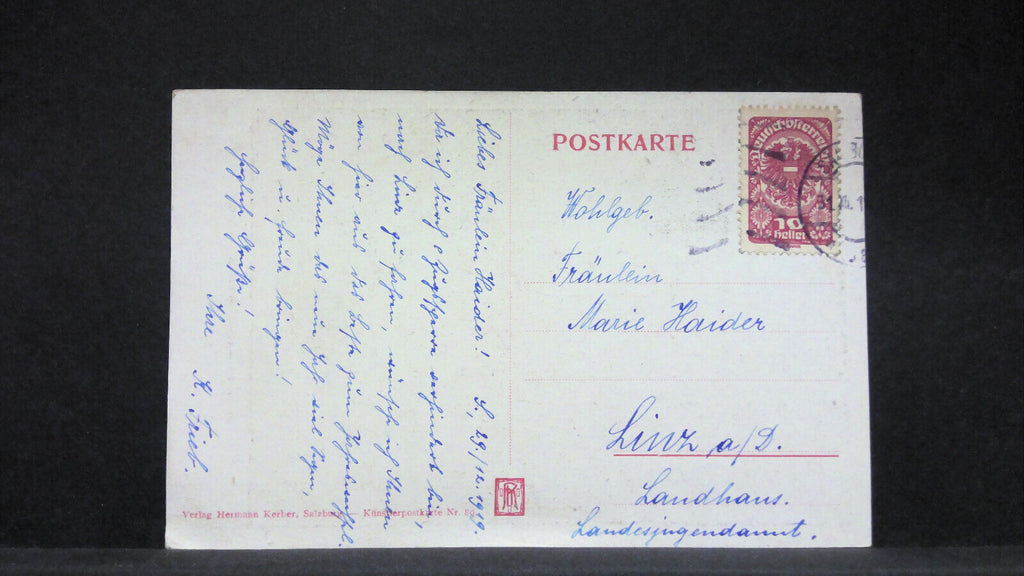 POSTKARTE
Deutschösterreich
10
Heller
31.
Wohlgeb.
Fräulein
Marie Haider
Linz a/D.
Landhaus.
Landesjugendamt.
Liebes Fräulein Haider! S, 29/12. 1919.
Da ich durch Zugssperre verhindert bin,
nach Linz zu fahren, wünsche ich Ihnen
von hier aus das beste zum Jahreswechsel.
Möge Ihnen das neue Jahr viel Segen,
Glück u. Freude bringen!
Herzliche Grüße!
Ihre
K. Frieb.
Verlag Hermann Kerber, Salzburg — Künstlerpostkarte Nr.